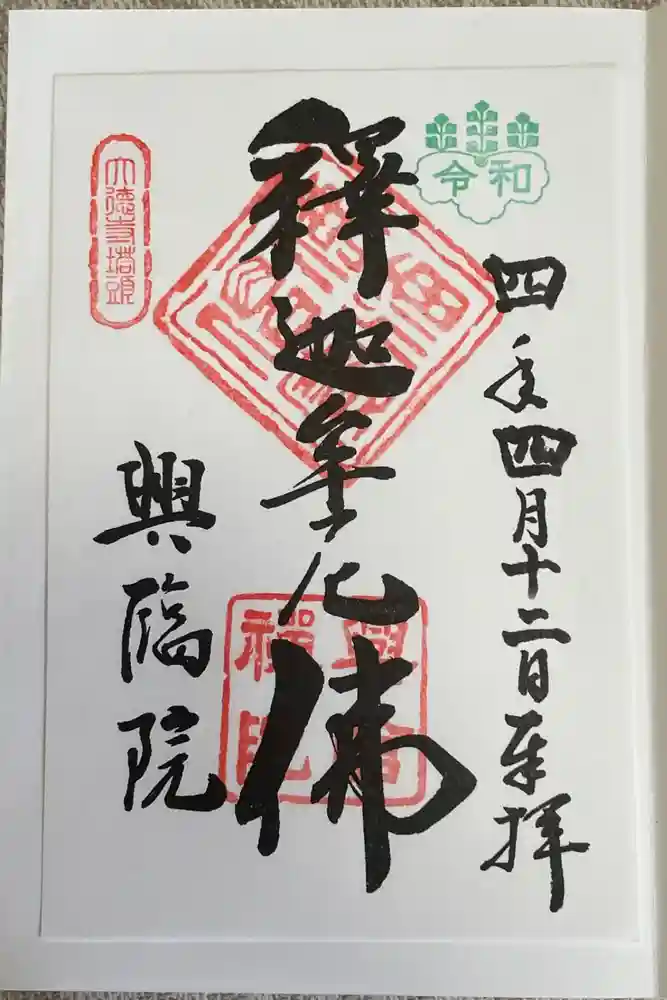 令和
四年四月十二日奉拝
釋迦牟尼佛
大徳寺塔頭
興臨院